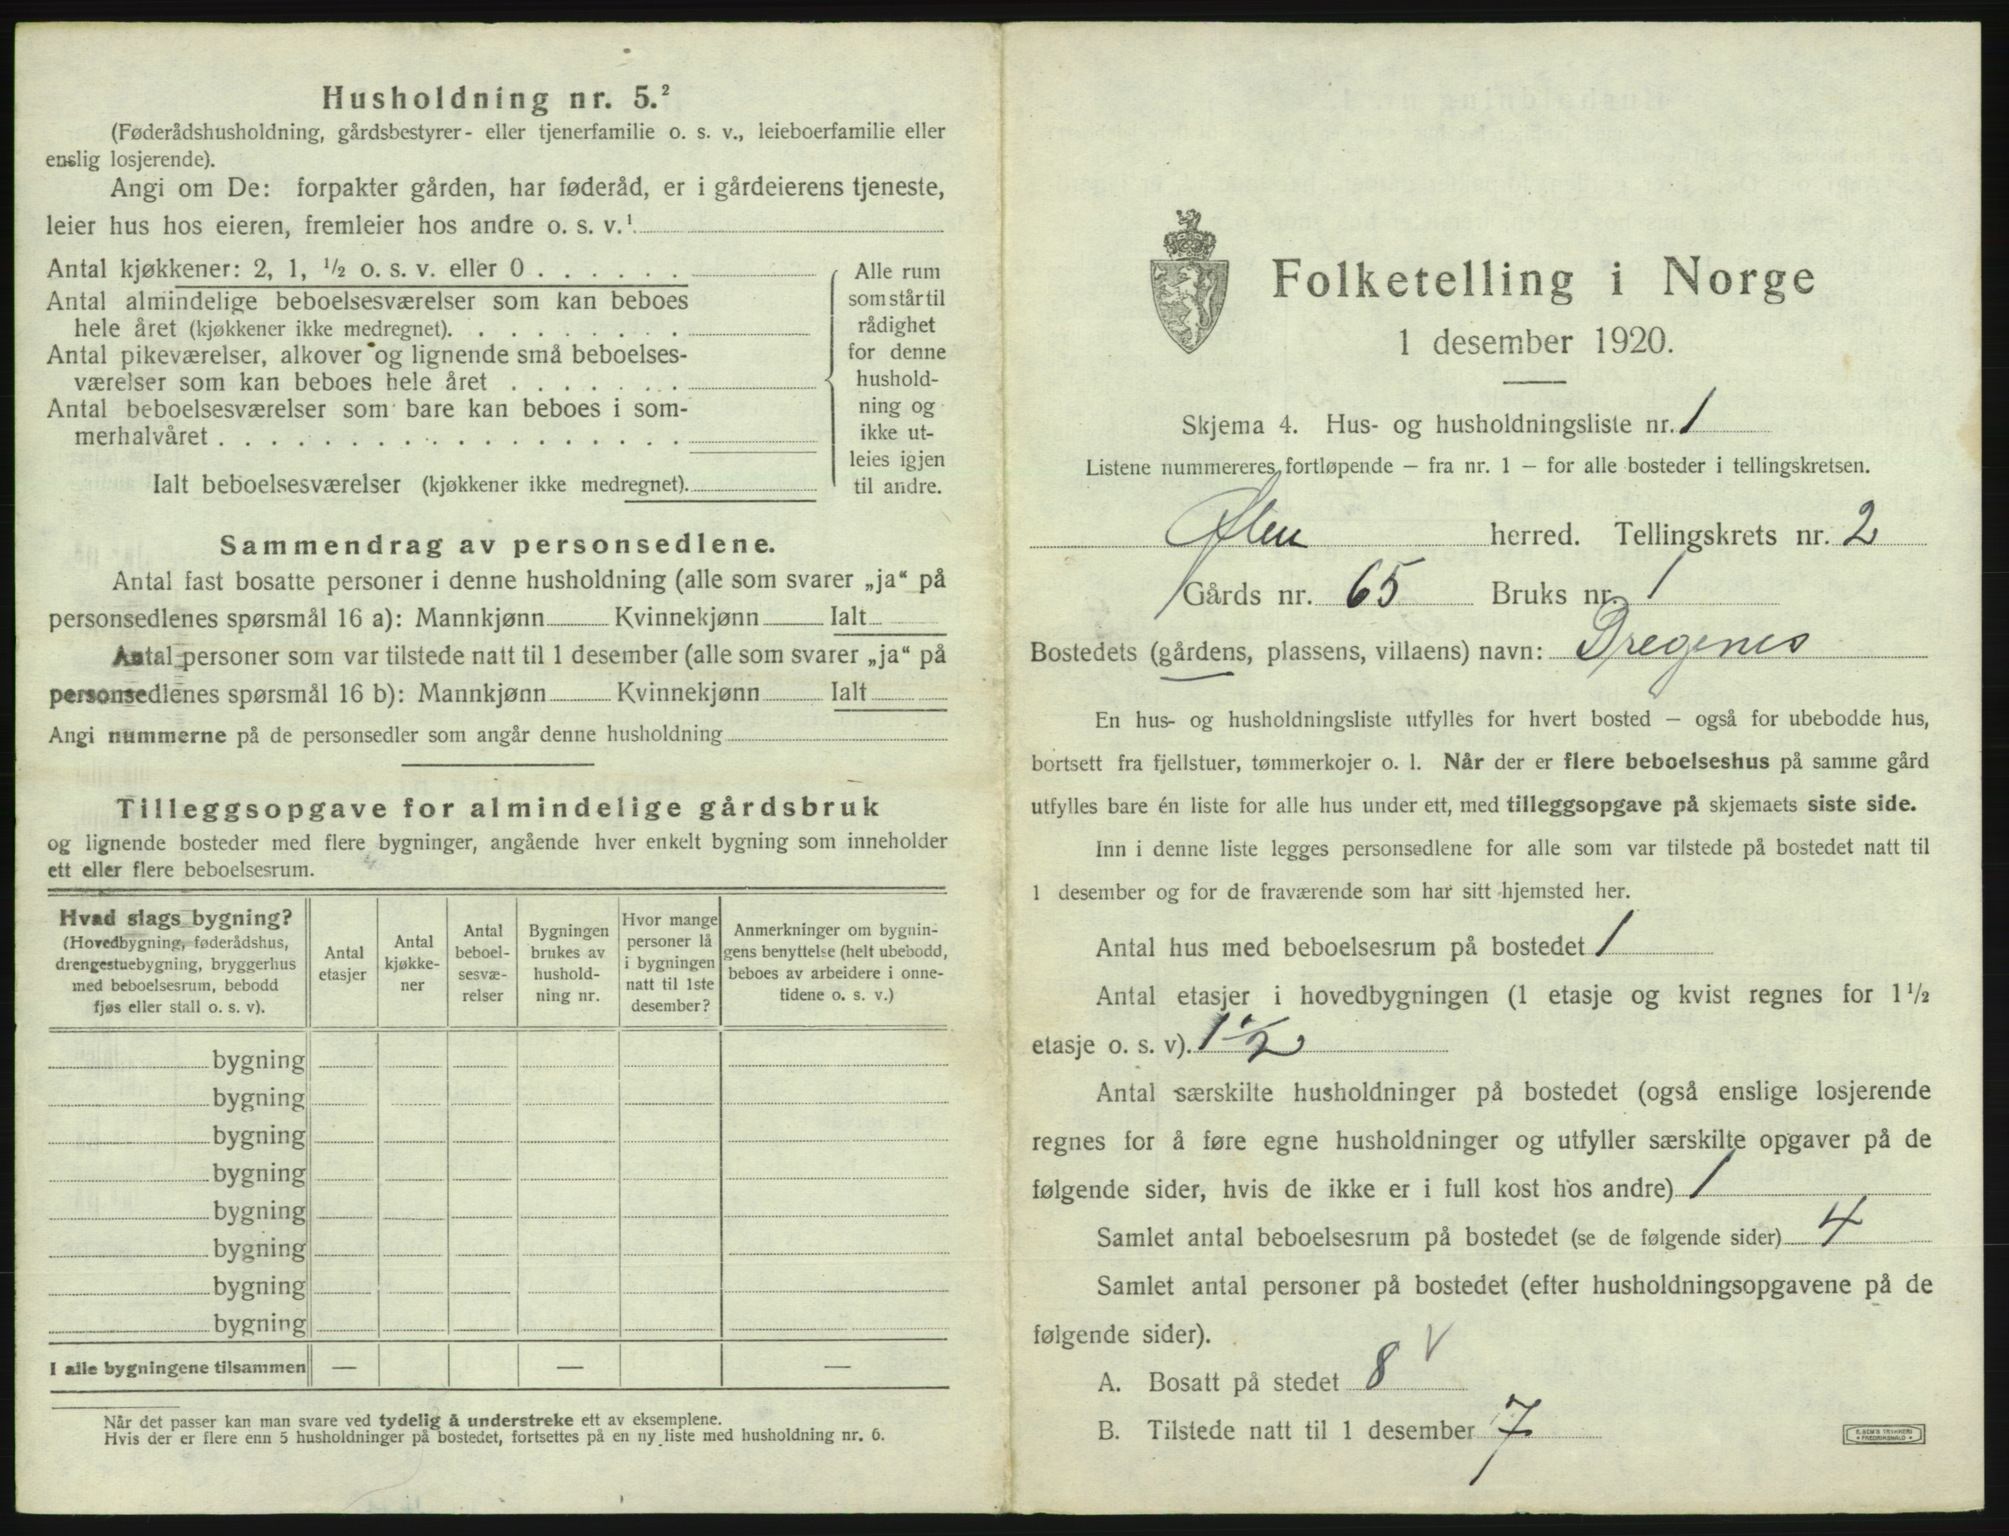 Husholdning nr. 5.²
(Føderådshusholdning, gårdsbestyrer- eller tjenerfamilie o. s. v., leieboerfamilie eller
enslig losjerende).
Angi om De: forpakter gården, har føderåd, er i gårdeierens tjeneste,
leier hus hos eieren, fremleier hos andre o. s. v.¹
Antal kjøkkener: 2, 1, ½ o. s. v. eller 0 . . . . . .
Antal almindelige beboelsesværelser som kan beboes
hele året (kjøkkener ikke medregnet). . . . . . . . .
Antal pikeværelser, alkover og lignende små beboelses-
værelser som kan beboes hele året . . . . . . .
Antal beboelsesværelser som bare kan beboes i som-
merhalvåret . . . . . . . . . . . . . . . . . .
Ialt beboelsesværelser (kjøkkener ikke medregnet).
Alle rum
som står til
rådighet
for denne
hushold-
ning og
ikke ut-
leies igjen
til andre.
Sammendrag av personsedlene.
Antal fast bosatte personer i denne husholdning (alle som svarer „ja“ på
personsedlenes spørsmål 16 a): Mannkjønn Kvinnekjønn Ialt
Antal personer som var tilstede natt til 1 desember (alle som svarer „ja“ på
personsedlenes spørsmål 16 b): Mannkjønn Kvinnekjønn Ialt
Angi nummerne på de personsedler som angår denne husholdning
Tilleggsopgave for almindelige gårdsbruk
og lignende bosteder med flere bygninger, angående hver enkelt bygning som inneholder
ett eller flere beboelsesrum.
Hvad slags bygning?
(Hovedbygning, føderådshus,
drengestuebygning, bryggerhus
med beboelsesrum, bebodd
fjøs eller stall o. s. v).
Antal
etasjer
Antal
kjøkke-
ner
Antal
beboel-
sesvæ-
relser
Bygningen
brukes av
hushold-
ning nr.
Hvor mange
personer lå
i bygningen
natt til 1ste
desember?
Anmerkninger om bygnin-
gens benyttelse (helt ubebodd,
beboes av arbeidere i onne-
tidene o. s. v.)
bygning
bygning
bygning
bygning
bygning
bygning
bygning
bygning
I alle bygningene tilsammen — — —
Når det passer kan man svare ved tydelig å understreke ett av eksemplene.
Hvis der er flere enn 5 husholdninger på bostedet, fortsettes på en ny liste med husholdning nr. 6.
Folketelling i Norge
1 desember 1920.
Skjema 4. Hus- og husholdningsliste nr. 1
Listene nummereres fortløpende – fra nr. 1 – for alle bosteder i tellingskretsen.
Ølen herred. Tellingskrets nr. 2
Gårds nr. 65 Bruks nr. 1
Bostedets (gårdens, plassens, villaens) navn: Dregenes
En hus- og husholdningsliste utfylles for hvert bosted – også for ubebodde hus,
bortsett fra fjellstuer, tømmerkojer o. l. Når der er flere beboelseshus på samme gård
utfylles bare én liste for alle hus under ett, med tilleggsopgave på skjemaets siste side.
Inn i denne liste legges personsedlene for alle som var tilstede på bostedet natt til
1 desember og for de fraværende som har sitt hjemsted her.
Antal hus med beboelsesrum på bostedet 1
Antal etasjer i hovedbygningen (1 etasje og kvist regnes for 1½
etasje o. s. v). 1½
Antal særskilte husholdninger på bostedet (også enslige losjerende
regnes for å føre egne husholdninger og utfyller særskilte opgaver på de
følgende sider, hvis de ikke er i full kost hos andre) 1
Samlet antal beboelsesrum på bostedet (se de følgende sider) 4
Samlet antal personer på bostedet (efter husholdningsopgavene på de
følgende sider).
A. Bosatt på stedet 8 V
B. Tilstede natt til 1 desember 7